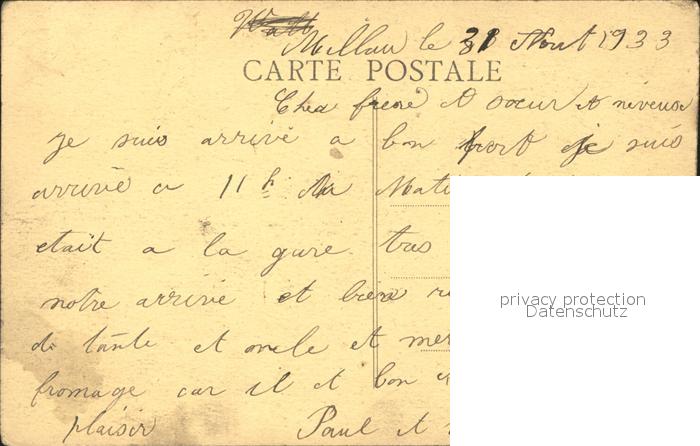 Millau le 31 Aout 1933
CARTE POSTALE
Cher frere et soeur et neveuse
je suis arrivé a bon port je suis
arrivé a 11 h du Mati
etait a la gare tres
notre arrivé et bien
de tante et oncle et mer
fromage car il et bon
plaisir Paul et
privacy protection
Datenschutz